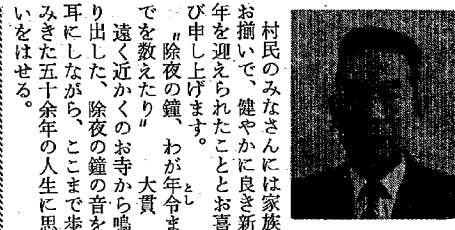 村民のみなさんには家族
お揃いで、健やかに良き新
年を迎えられたこととお喜
び申し上げます。
〝除夜の鐘、わが年令ま
でを数えたり〟　大貫
とし
遠く近かくのお寺から鳴
り出した、除夜の鐘の音を
耳にしながら、ここまで歩
みきた五十余年の人生に思
いをはせる。